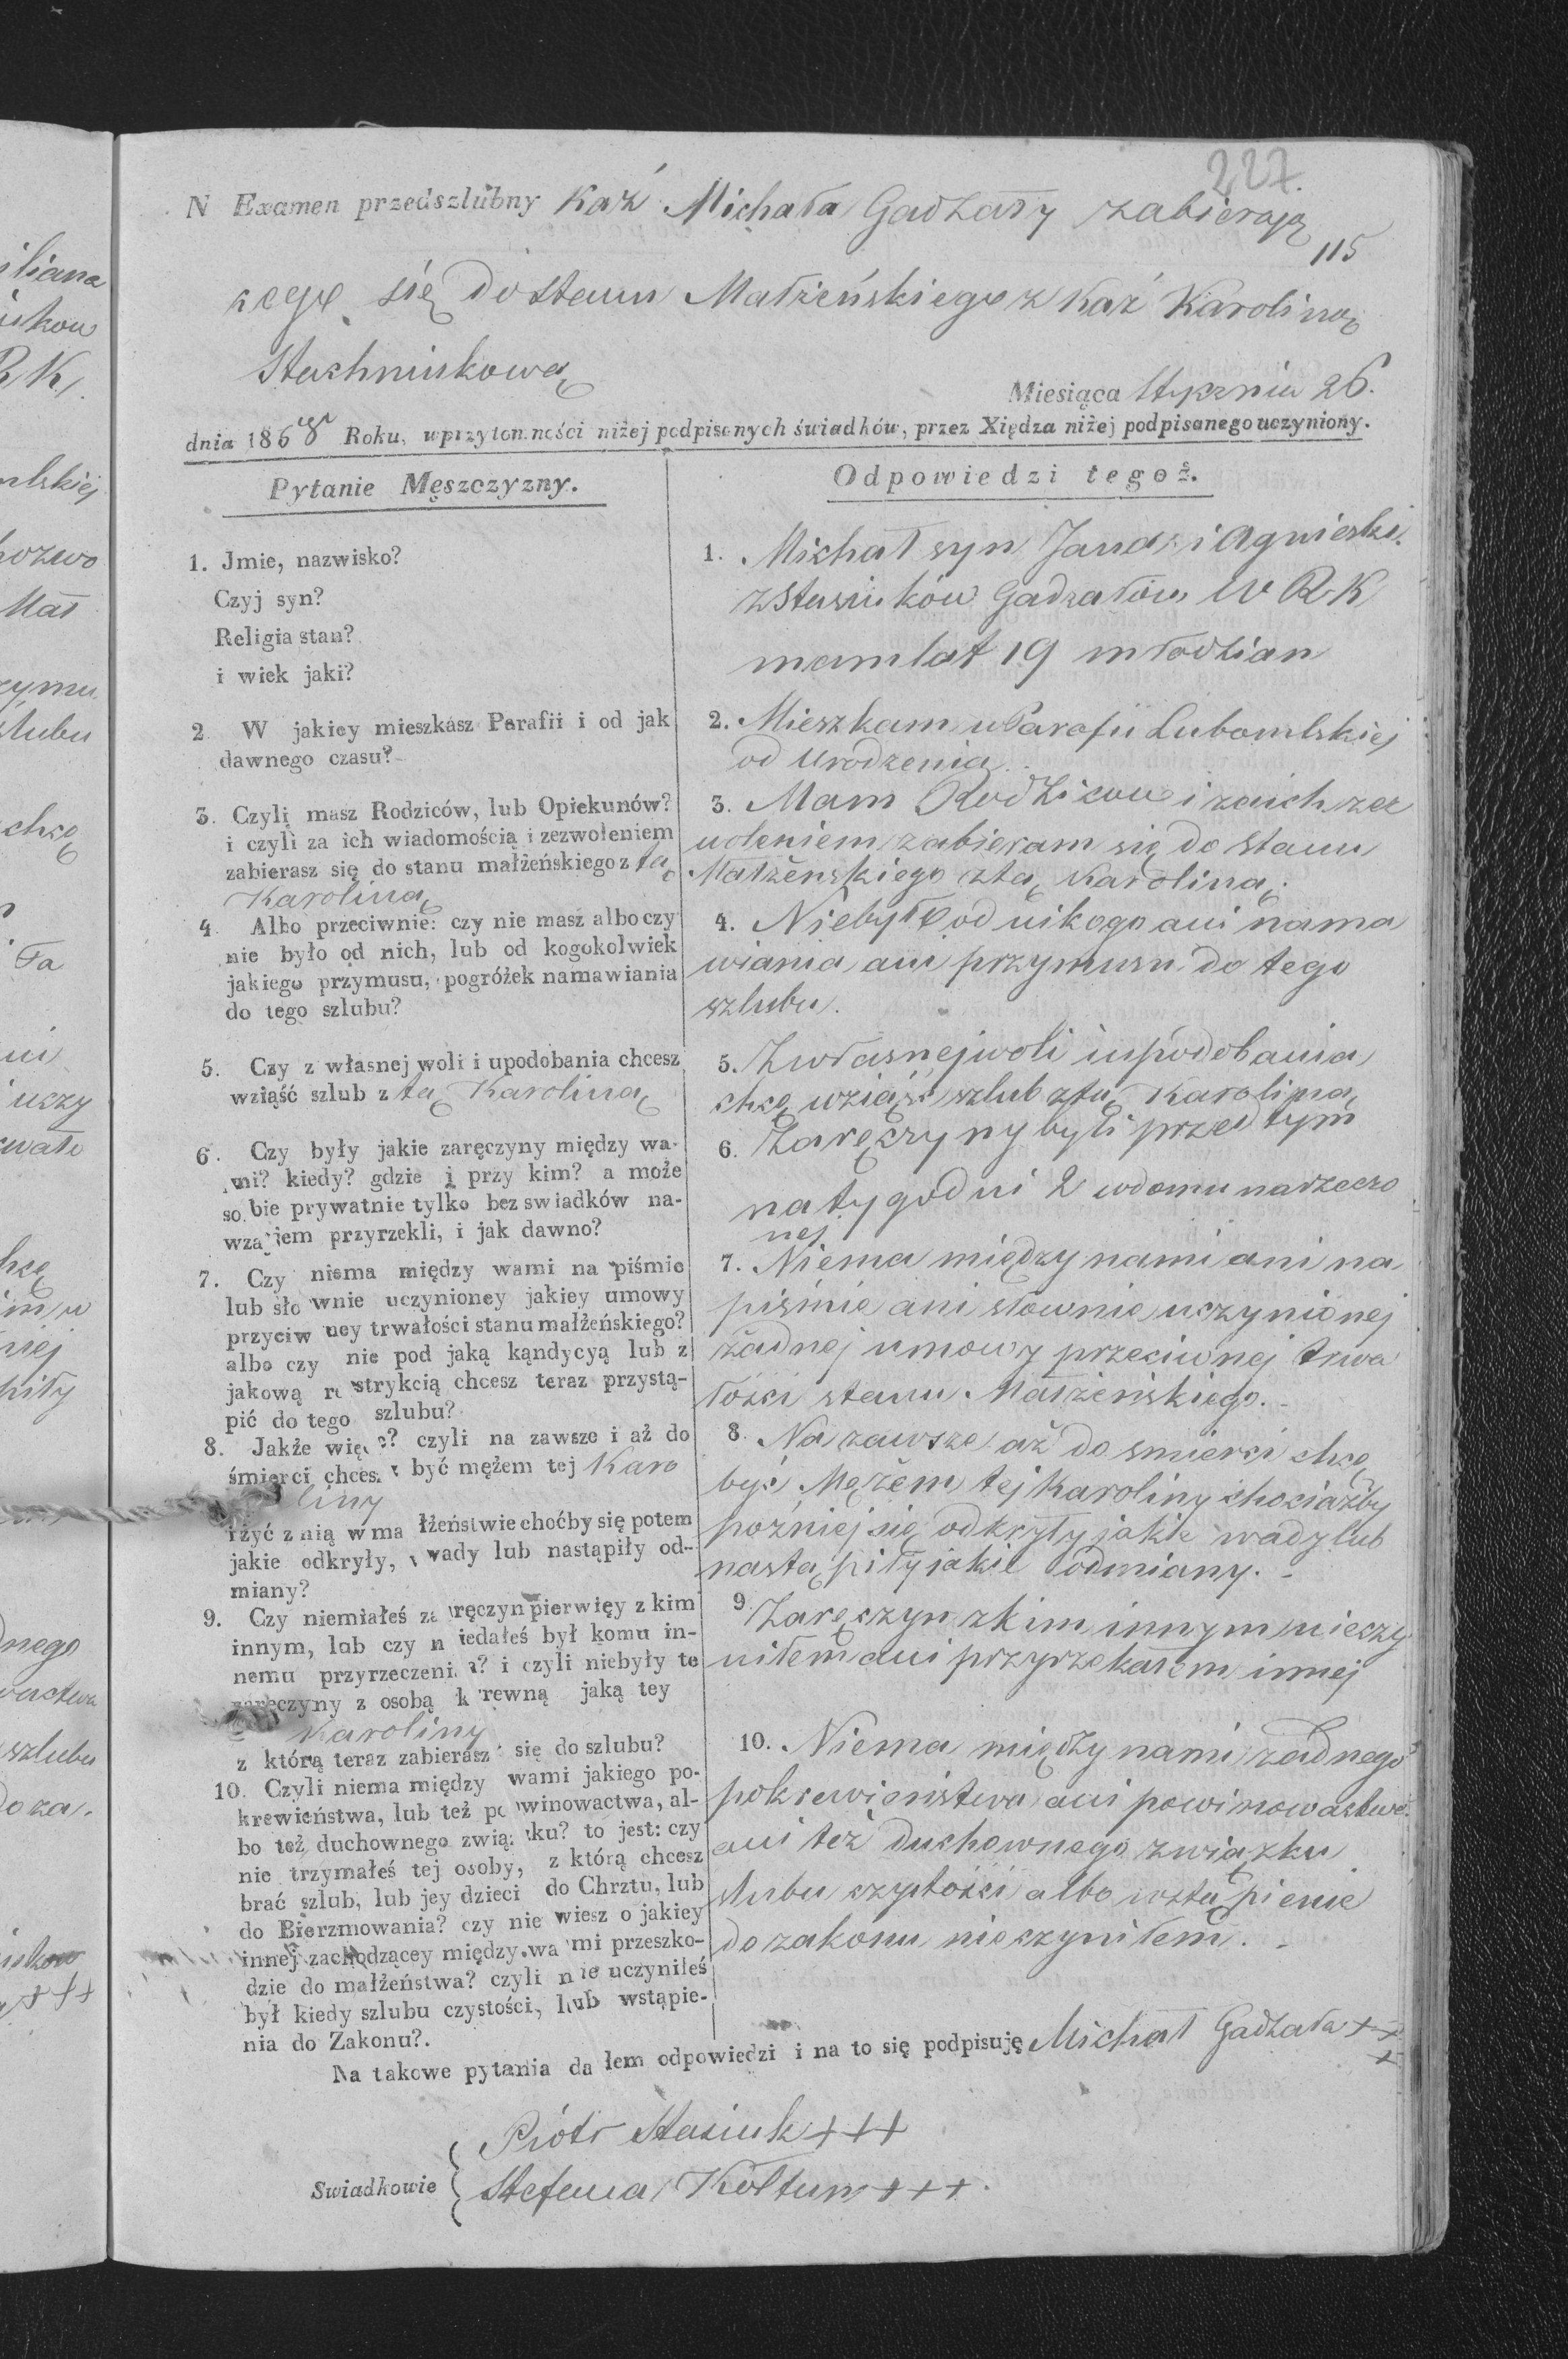 227.
N Examen przedszlubny Kaź Michała Gadzały zabierają
115
cego się do stanu Małżeńskiego z Kaź Karoliną
Stachniukową
Miesiąca Stycznia 26.
dnia 1868 Roku, wprzytomności niżej podpisanych świadków, przez Xiędza niżej podpisanego uczyniony.
Pytanie Męszczyzny.
1. Jmie, nazwisko?
Czyj syn?
Religia stan?
i wiek jaki?
2 W jakiey mieszkasz Parafii i od jak
dawnego czasu?
3. Czyli masz Rodziców, lub Opiekunów?
i czyli za ich wiadomością i zezwoleniem
zabierasz się do stanu małżeńskiego z tą
Karoliną
4 Albo przeciwnie: czy nie masz albo czy
nie było od nich, lub od kogokolwiek
jakiego przymusu, pogróżek namawiania
do tego szlubu?
5. Czy z własnej woli i upodobania chcesz
wziąść szlub z tą Karoliną
6. Czy były jakie zaręczyny między wa-
mi? kiedy? gdzie i przy kim? a może
sobie prywatnie tylko bez swiadków na-
wzajem przyrzekli, i jak dawno?
7. Czy niema między wami na piśmie
lub słownie uczynioney jakiey umowy
przyciwney trwałości stanu małżeńskiego?
albo czy nie pod jaką kąndycyą lub z
jakową restrykcią chcesz teraz przystą-
pić do tego szlubu?
8. Jakże więc? czyli na zawsze i aż do
śmierci chcesz być mężem tej Karo
liny
i żyć z nią w małżeństwie choćby się potem
jakie odkryły, wady lub nastąpiły od-
miany?
9. Czy niemiałeś zaręczyn pierwięy z kim
innym, lub czy niedałeś był komu in-
nemu przyrzeczenia? i czyli niebyły te
zaręczyny z osobą krewną jaką tey
Karoliny
z którą teraz zabierasz się do szlubu?
10. Czyli niema między wami jakiego po-
krewieństwa, lub też powinowactwa, al-
bo też duchownego związku? to jest: czy
nie trzymałeś tej osoby, z którą chcesz
brać szlub, lub jey dzieci do Chrztu, lub
do Bierzmowania? czy nie wiesz o jakiey
innej zachodzącey między wami przeszko-
dzie do małżeństwa? czyli nie uczyniłeś
był kiedy szlubu czystości, lub wstąpie-
nia do Zakonu?.
Odpowiedzi tegoż.
1. Michał syn Jana i Agnieski
z Stasiuków Gadzałów W R K
mam lat 19 młodzian
2. Mieszkam w Parafii Lubomlskiej
od urodzenia
3. Mam Rodziców i za ich zez
woleniem zabieram się do stanu
Małżeńskiego z tą Karoliną.
4. Niebyło od nikogo ani nama
wiania ani przymusu do tego
szlubu.
5. Z własnej woli i upodobania
chcę wziąść szlub z tą Karoliną
6. Zaręczyny byli przed tym
na tygodni 2 w domu narzeczo
nej
7. Niema między nami ani na
piśmie ani słownie uczynionej
żadnej umowy przeciwnej trwa
łości stanu Małżeńskiego.
8. Na zawsze aż do smierci chcę
być Mężem tej Karoliny chociażby
pożniej się odkryły jakie wady lub
nastąpiły jakie odmiany.
9. Zaręczyn z kim innym nieczy
niłem ani przyrzekałem innej
10. Niema między nami żadnego
pokrewieństwa ani powinowactwa
ani też duchownego związku
slubu czystości albo wstąpienie
do zakonu nieczyniłem.
Na takowe pytania dałem odpowiedzi i na to się podpisuję Michał Gadzała +++
Swiadkowie
Piótr Stasiuk +++
Stefana Kołtun +++.